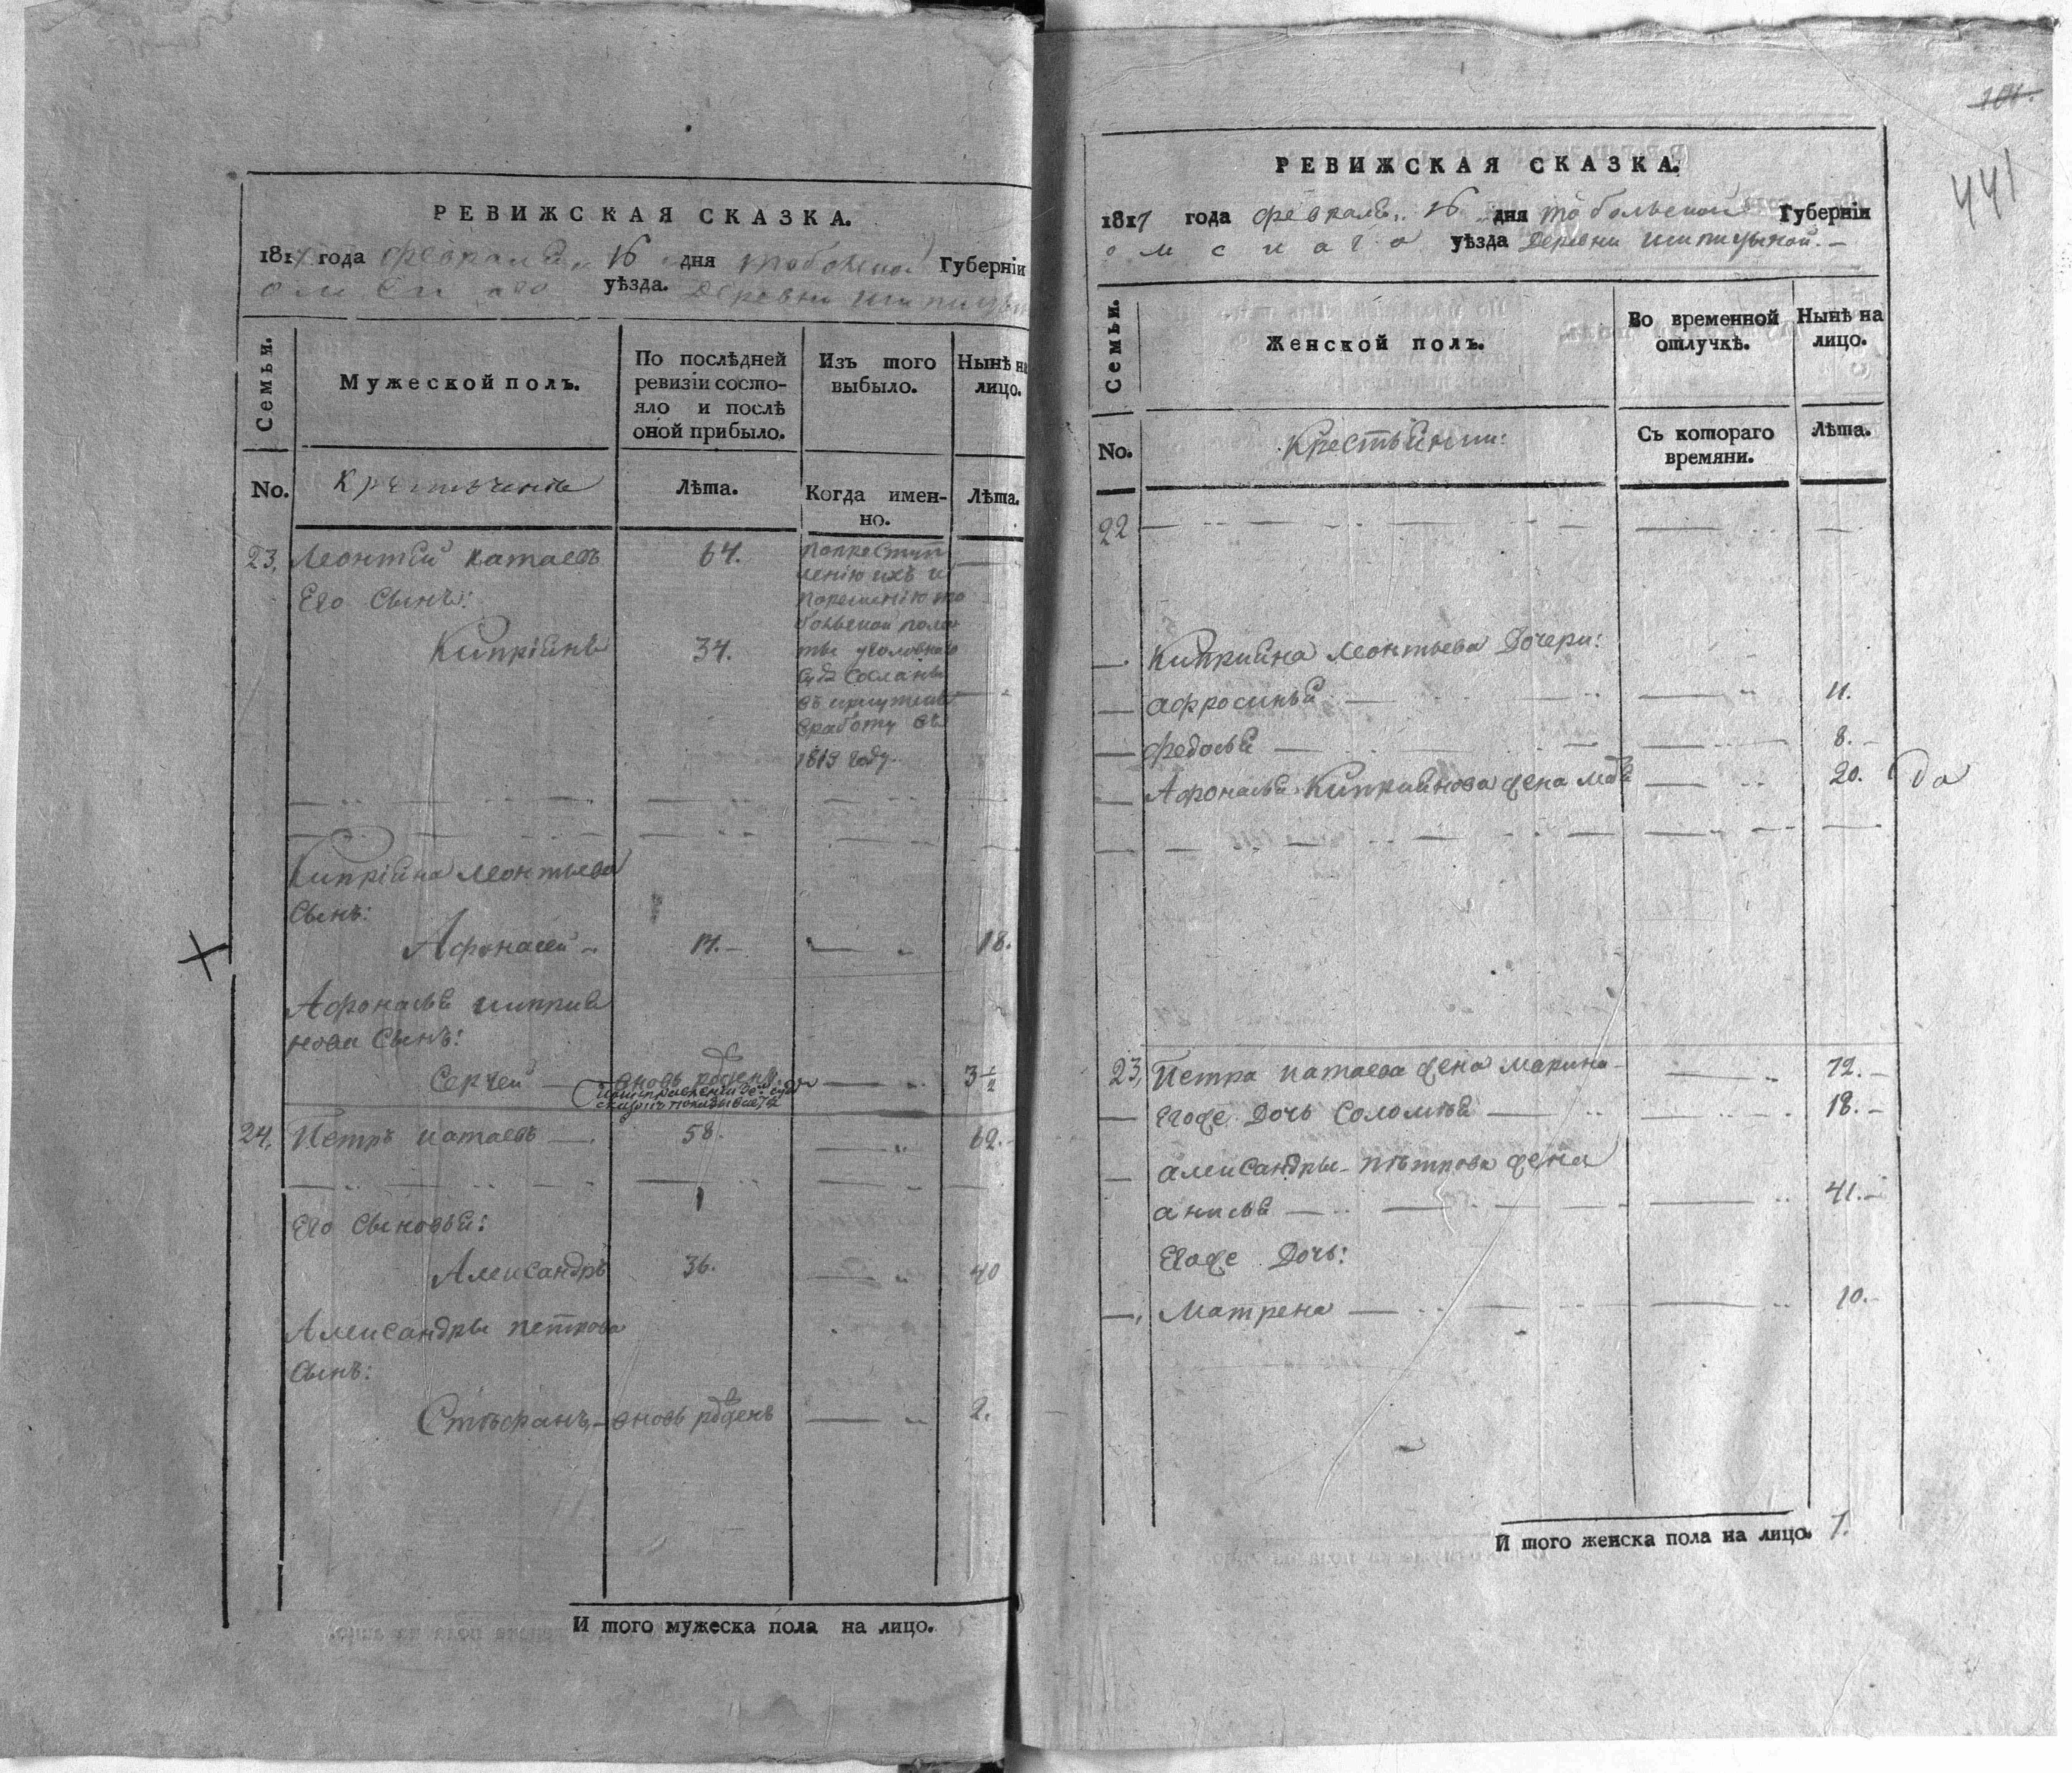 РЕВИЖСКАЯ СКАЗКА.
1817 года февраля 16 дня тобольской Губерніи
омскаго уѣзда. Деревни шипицыной
Семьи.
Мужеской полъ.
По послѣдней
ревизіи состо-
яло и послѣ
оной прибыло.
Изъ того
выбыло.
Нынѣ на
лицо.
No.
Крестьяне
Лѣта.
Когда имен-
но.
Лѣта.
23. Леонтей катаевъ 64.
Его Сынъ:
Кипріянъ 34.
лению ихъ и
порешению то
больской пала
ты уголовнаго
суда Сосланы
въ
работу въ
1813 году
Кипріяна Леонтьева
Сынъ:
Афонасей 14. 18.
Афонасья киприя
нова Сынъ:
Сергей вновь рожденъ 3 1/2
24. Петръ катаевъ 58. 62.
Его Сыновья:
Александръ 36. 40
Александры петрова
Сынъ:
Стефанъ вновь рожденъ 2.
И того мужеска пола на лицо. 5
101.
441
РЕВИЖСКАЯ СКАЗКА.
1817 года февраля 16 дня тобольской Губерніи
омскаго уѣзда Деревни шипицыной
Семьи.
Женской полъ.
Во временной
отлучкѣ.
Нынѣ на
лицо.
No.
Крестьянки:
Съ котораго
времяни.
Лѣта.
22
Киприяна Леонтьева Дочери:
Афросинья 11.
Федосья 8.
Афонасья Киприянова жена 20. да
23, Петра катаева жена Марина 72.
Егоже Дочь Соломея 18.
Александры петрова жена
анисья 41.
Егоже Дочь:
Матрена 10.
И того женска пола на лицо. 7.